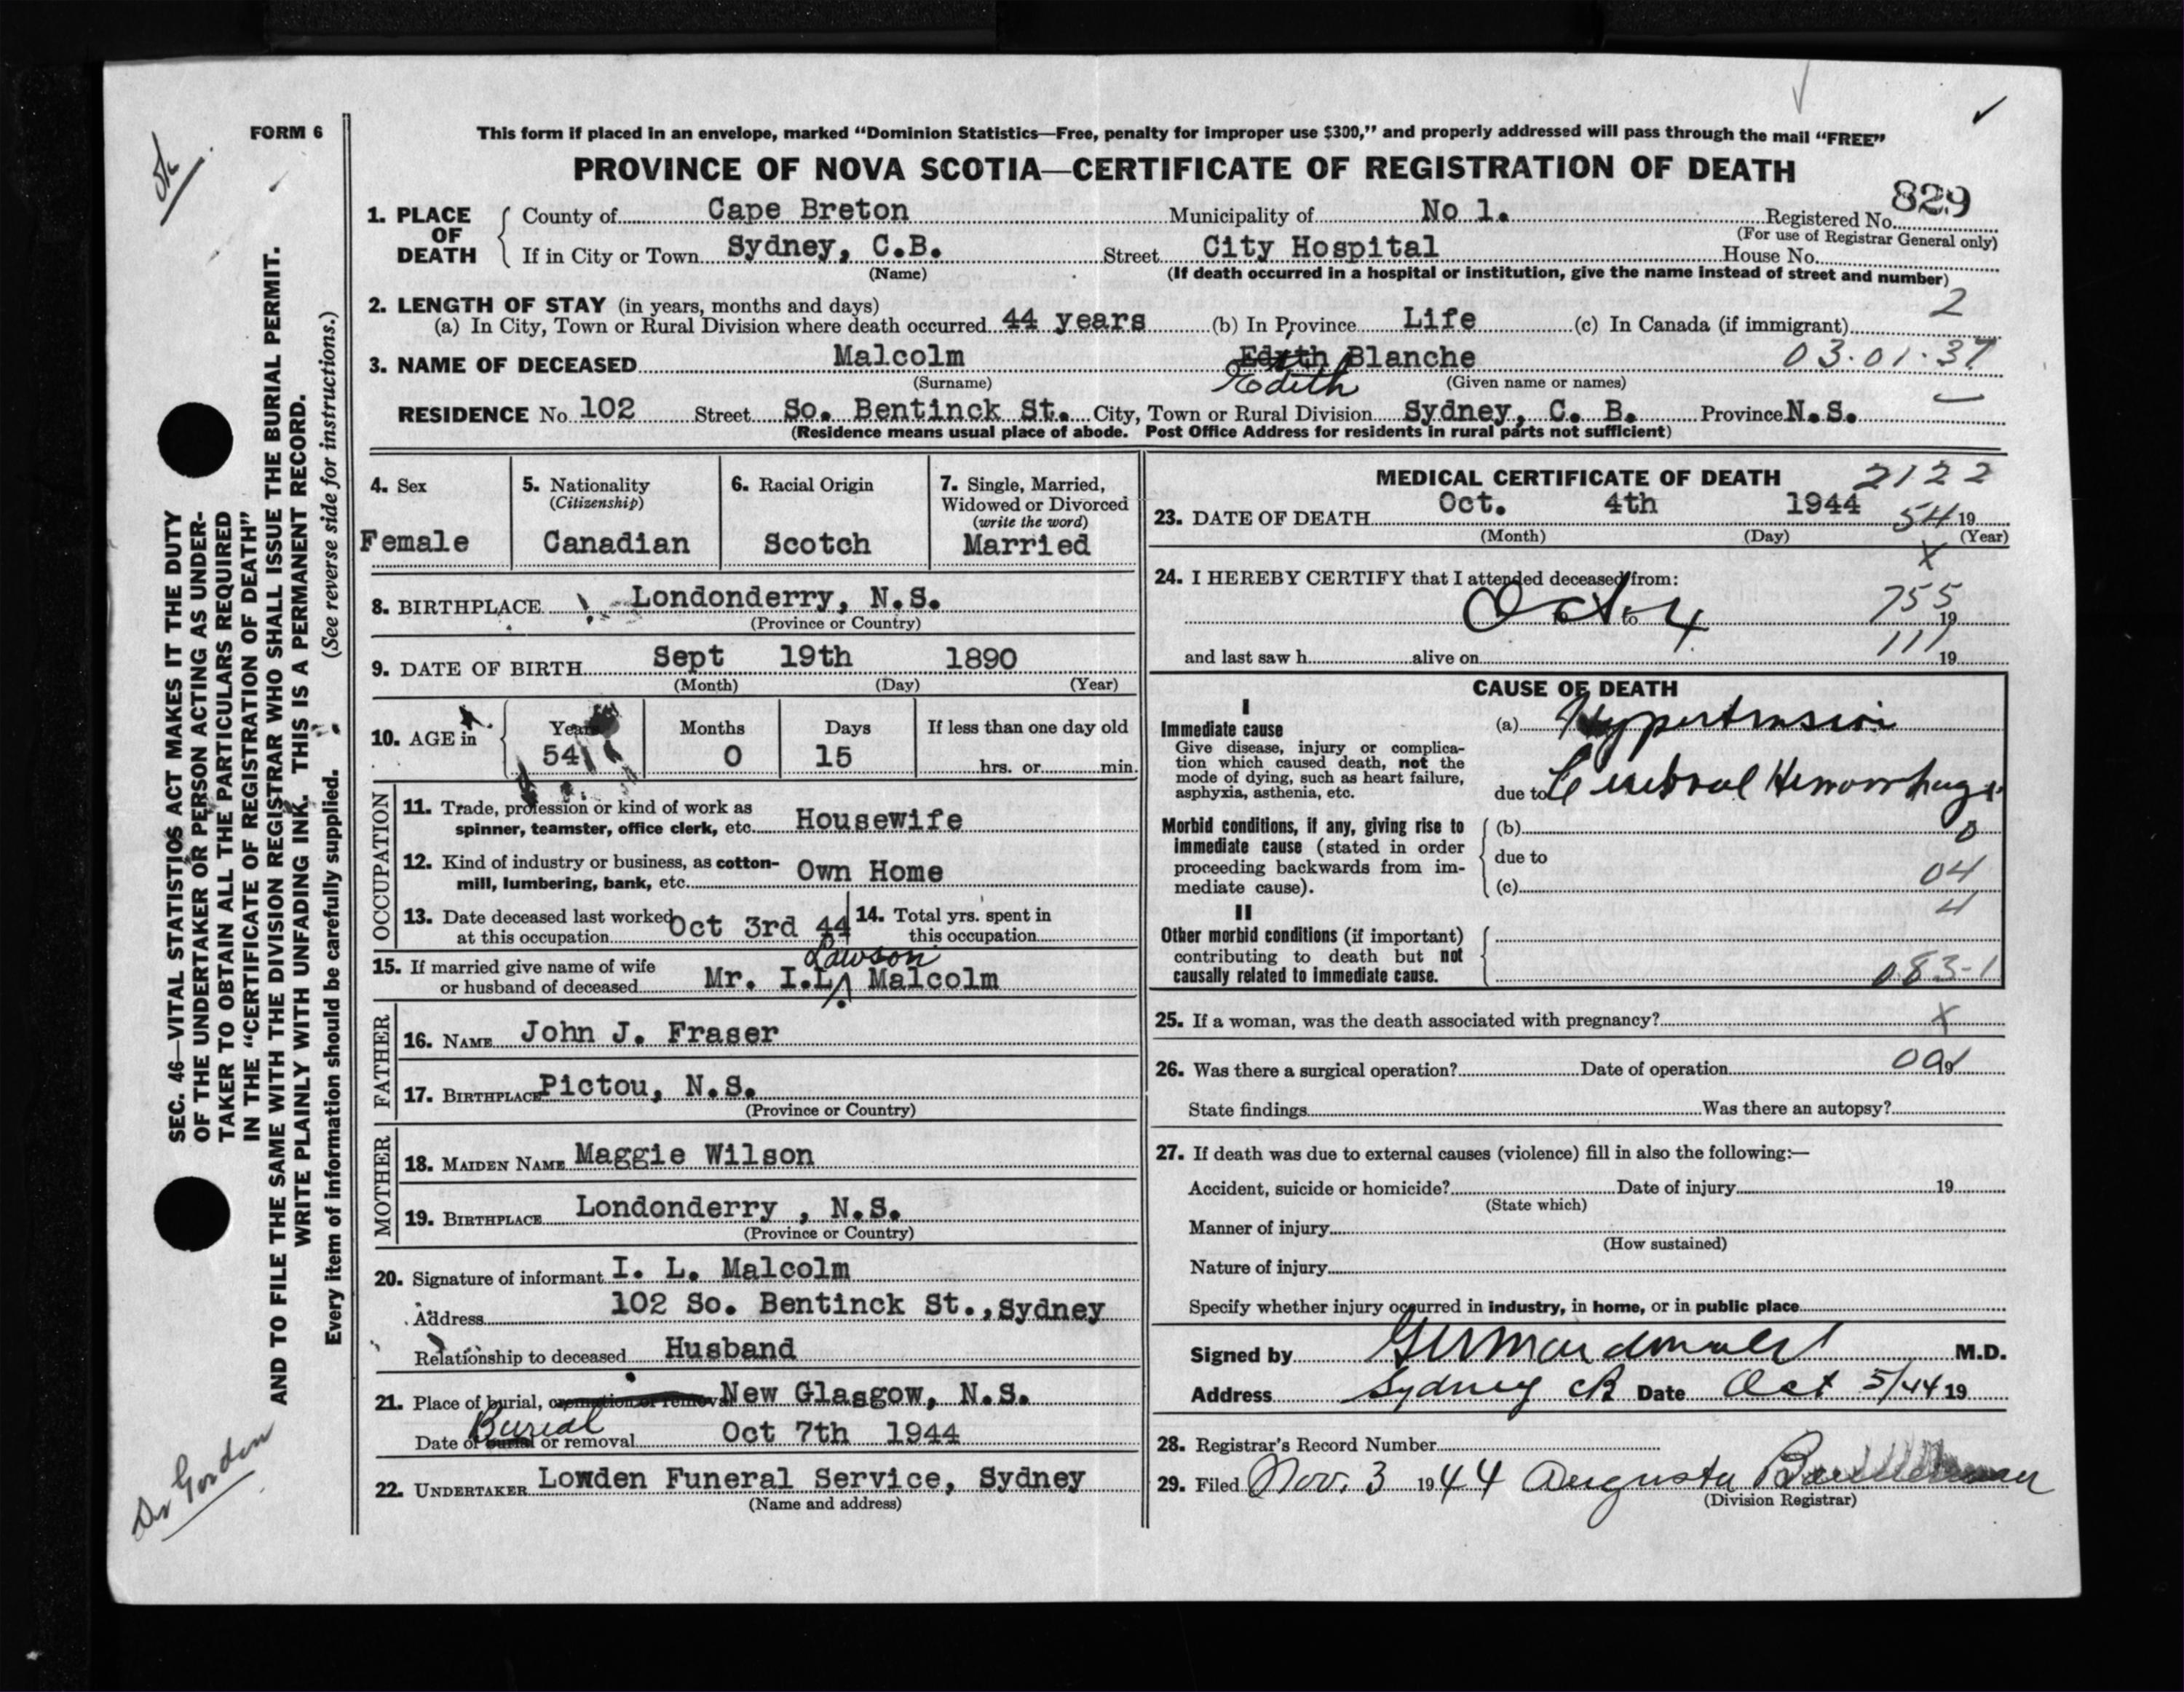 FORM 6
This form if placed in an envelope, marked "Dominion Statistics—Free, penalty for improper use $300," and properly addressed will pass through the mail "FREE"
PROVINCE OF NOVA SCOTIA—CERTIFICATE OF REGISTRATION OF DEATH
829
1. PLACE OF DEATH
County of Cape Breton Municipality of No 1. Registered No.
(For use of Registrar General only)
If in City or Town Sydney, C.B. Street City Hospital House No.
(Name) (If death occurred in a hospital or institution, give the name instead of street and number)
2. LENGTH OF STAY (in years, months and days) 2
(a) In City, Town or Rural Division where death occurred 44 years (b) In Province Life (c) In Canada (if immigrant)
3. NAME OF DECEASED Malcolm Edith Blanche 03.01.37
(Surname) Edith (Given name or names)
RESIDENCE No. 102 Street So. Bentinck St. City, Town or Rural Division Sydney, C. B. Province N.S.
(Residence means usual place of abode. Post Office Address for residents in rural parts not sufficient)
4. Sex
Female
5. Nationality
(Citizenship)
Canadian
6. Racial Origin
Scotch
7. Single, Married,
Widowed or Divorced
(write the word)
Married
8. BIRTHPLACE Londonderry, N.S.
(Province or Country)
9. DATE OF BIRTH Sept 19th 1890
(Month) (Day) (Year)
10. AGE in
Years Months Days If less than one day old
54 0 15 hrs. or min.
OCCUPATION
11. Trade, profession or kind of work as
spinner, teamster, office clerk, etc. Housewife
12. Kind of industry or business, as cotton-
mill, lumbering, bank, etc. Own Home
13. Date deceased last worked
at this occupation Oct 3rd 44
14. Total yrs. spent in
this occupation
Lawson
15. If married give name of wife
or husband of deceased Mr. I.L. Malcolm
FATHER
16. NAME John J. Fraser
17. BIRTHPLACE Pictou, N.S.
(Province or Country)
MOTHER
18. MAIDEN NAME Maggie Wilson
19. BIRTHPLACE Londonderry , N.S.
(Province or Country)
20. Signature of informant I. L. Malcolm
Address 102 So. Bentinck St., Sydney
Relationship to deceased Husband
21. Place of burial, cremation or removal New Glasgow, N.S.
Burial
Date of burial or removal Oct 7th 1944
22. UNDERTAKER Lowden Funeral Service, Sydney
(Name and address)
MEDICAL CERTIFICATE OF DEATH 2122
23. DATE OF DEATH Oct. 4th 1944 54 19
(Month) (Day) (Year)
X
24. I HEREBY CERTIFY that I attended deceased from:
Oct 4 to 19
755
111
and last saw h alive on 19
CAUSE OF DEATH
I
Immediate cause
Give disease, injury or complica-
tion which caused death, not the
mode of dying, such as heart failure,
asphyxia, asthenia, etc.
(a) Hypertension
due to Cerebral Hemorrhage
Morbid conditions, if any, giving rise to
immediate cause (stated in order
proceeding backwards from im-
mediate cause).
(b) 0
due to
04
(c)
4
II
Other morbid conditions (if important)
contributing to death but not
causally related to immediate cause.
083-1
25. If a woman, was the death associated with pregnancy? X
26. Was there a surgical operation? Date of operation 19
State findings Was there an autopsy?
27. If death was due to external causes (violence) fill in also the following:—
Accident, suicide or homicide? Date of injury 19
(State which)
Manner of injury
(How sustained)
Nature of injury
Specify whether injury occurred in industry, in home, or in public place
Signed by M.D.
Address Sydney CB Date Oct 5/44 19
28. Registrar's Record Number
29. Filed Nov. 3 1944 Augusta
(Division Registrar)
SEC. 46—VITAL STATISTICS ACT MAKES IT THE DUTY
OF THE UNDERTAKER OR PERSON ACTING AS UNDER-
TAKER TO OBTAIN ALL THE PARTICULARS REQUIRED
IN THE "CERTIFICATE OF REGISTRATION OF DEATH"
AND TO FILE THE SAME WITH THE DIVISION REGISTRAR WHO SHALL ISSUE THE BURIAL PERMIT.
WRITE PLAINLY WITH UNFADING INK. THIS IS A PERMANENT RECORD.
Every item of information should be carefully supplied. (See reverse side for instructions.)
Dr Gordon